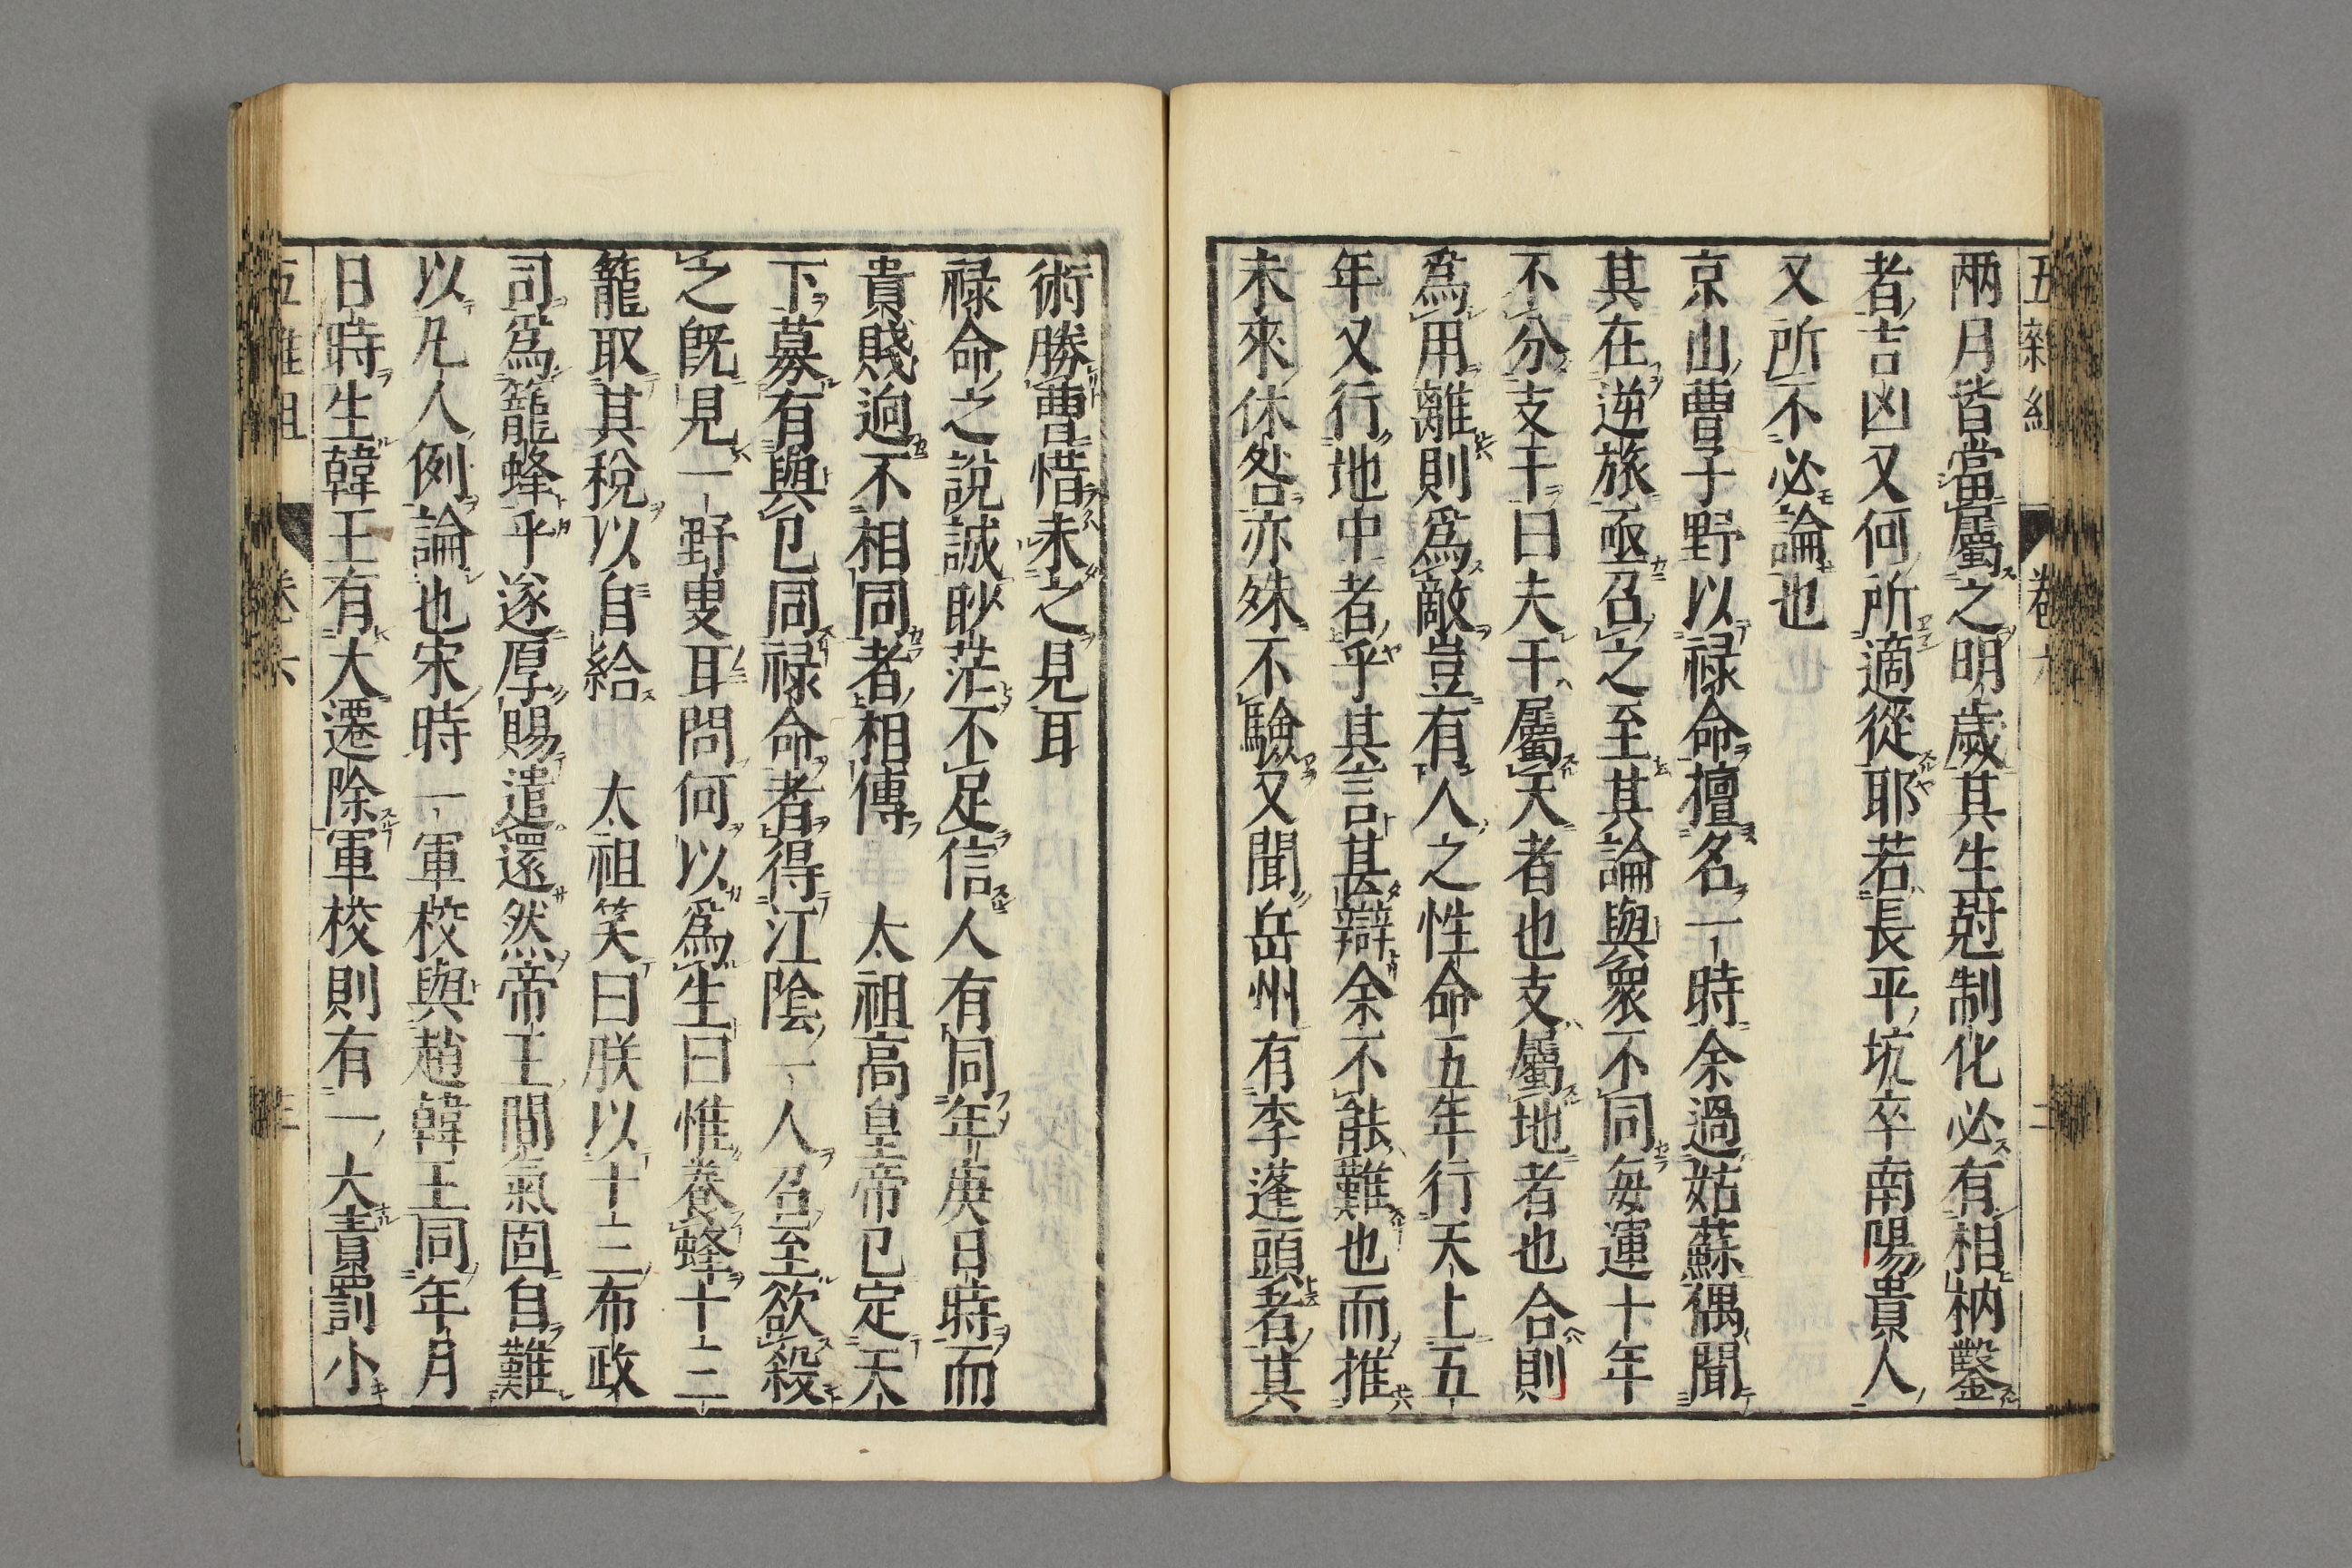 五雜組 卷六 二
兩月皆當屬之明歲其生尅制化必有相枘鑿
者吉凶又何所適從耶若長平坑卒南陽貴人
又所不必論也
京山曹子野以禄命擅名一時余過姑蘇偶聞
其在逆旅亟召之至其論與衆不同每運十年
不分支干曰夫干屬天者也支屬地者也合則
爲用離則爲敵豈有人之性命五年行天上五
年又行地中者乎其言甚辯余不能難也而推
未來休咎亦殊不驗又聞岳州有李蓬頭者其
術勝曹惜未之見耳
禄命之說誠眇茫不足信人有同年庚日時而
貴賤逈不相同者相傳 太祖高皇帝已定天
下募有與已同禄命者得江陰一人召至欲殺
之旣見一野叟耳問何以爲生曰惟養蜂十二
籠取其稅以自給 太祖笑曰朕以十二布政
司爲籠蜂乎遂厚賜遣還然帝王間氣固自難
以凡人例論也宋時一軍校與趙韓王同年月
日時生韓王有大遷除軍校則有一大責罰小
五雜組 卷六 三